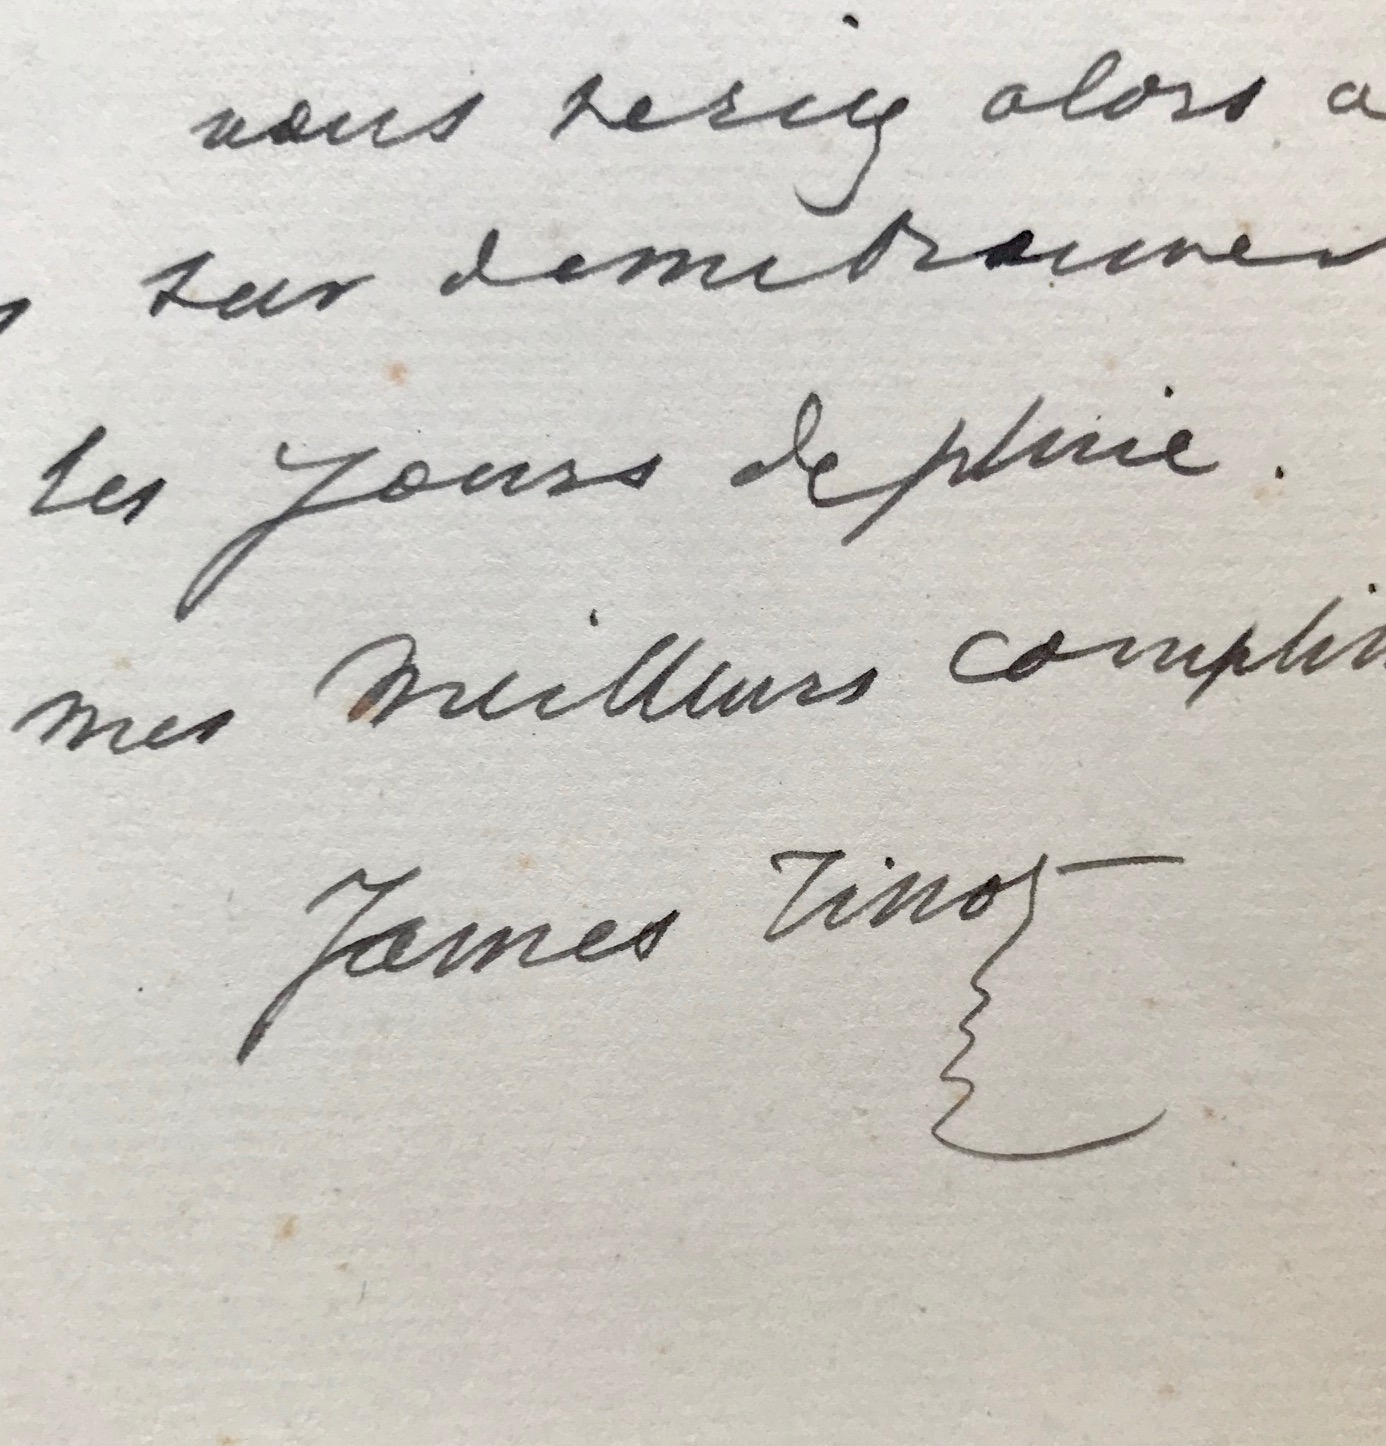 vous seriez alors a
sur de me trouver
les jours de pluie.
mes meilleurs complim
James Tissot